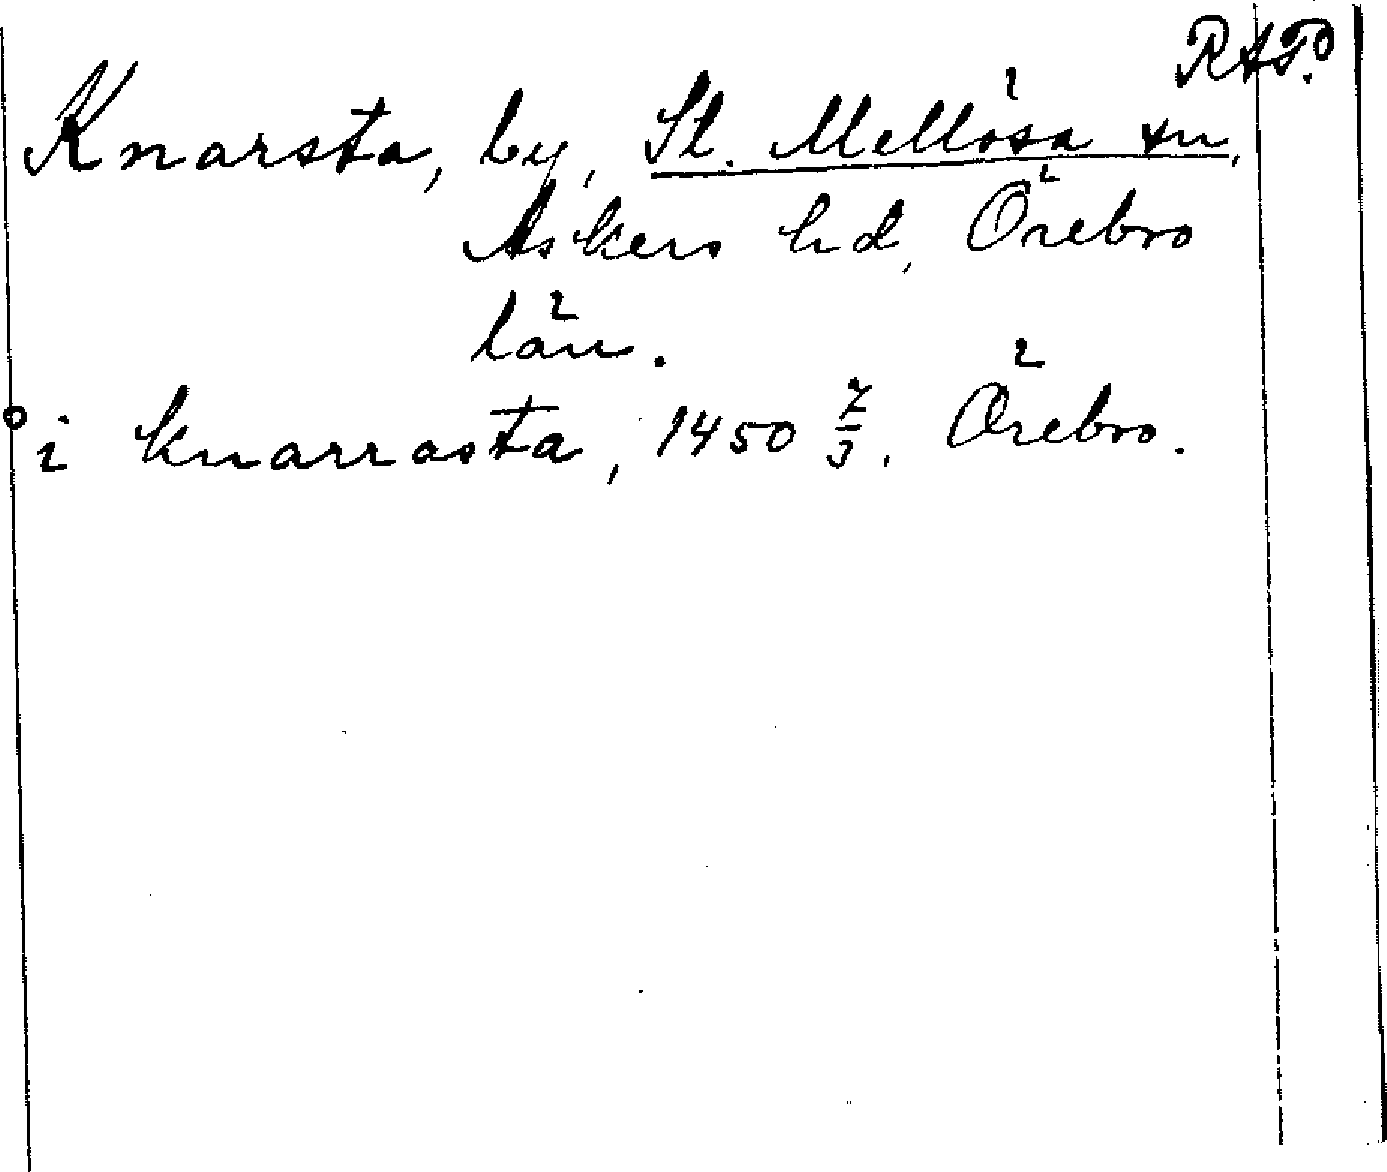 RAP.
Knarsta, by, St. Mellösa sn,
Askers hd, Örebro
län.
i knarrasta, 1450 7/3, Örebro.